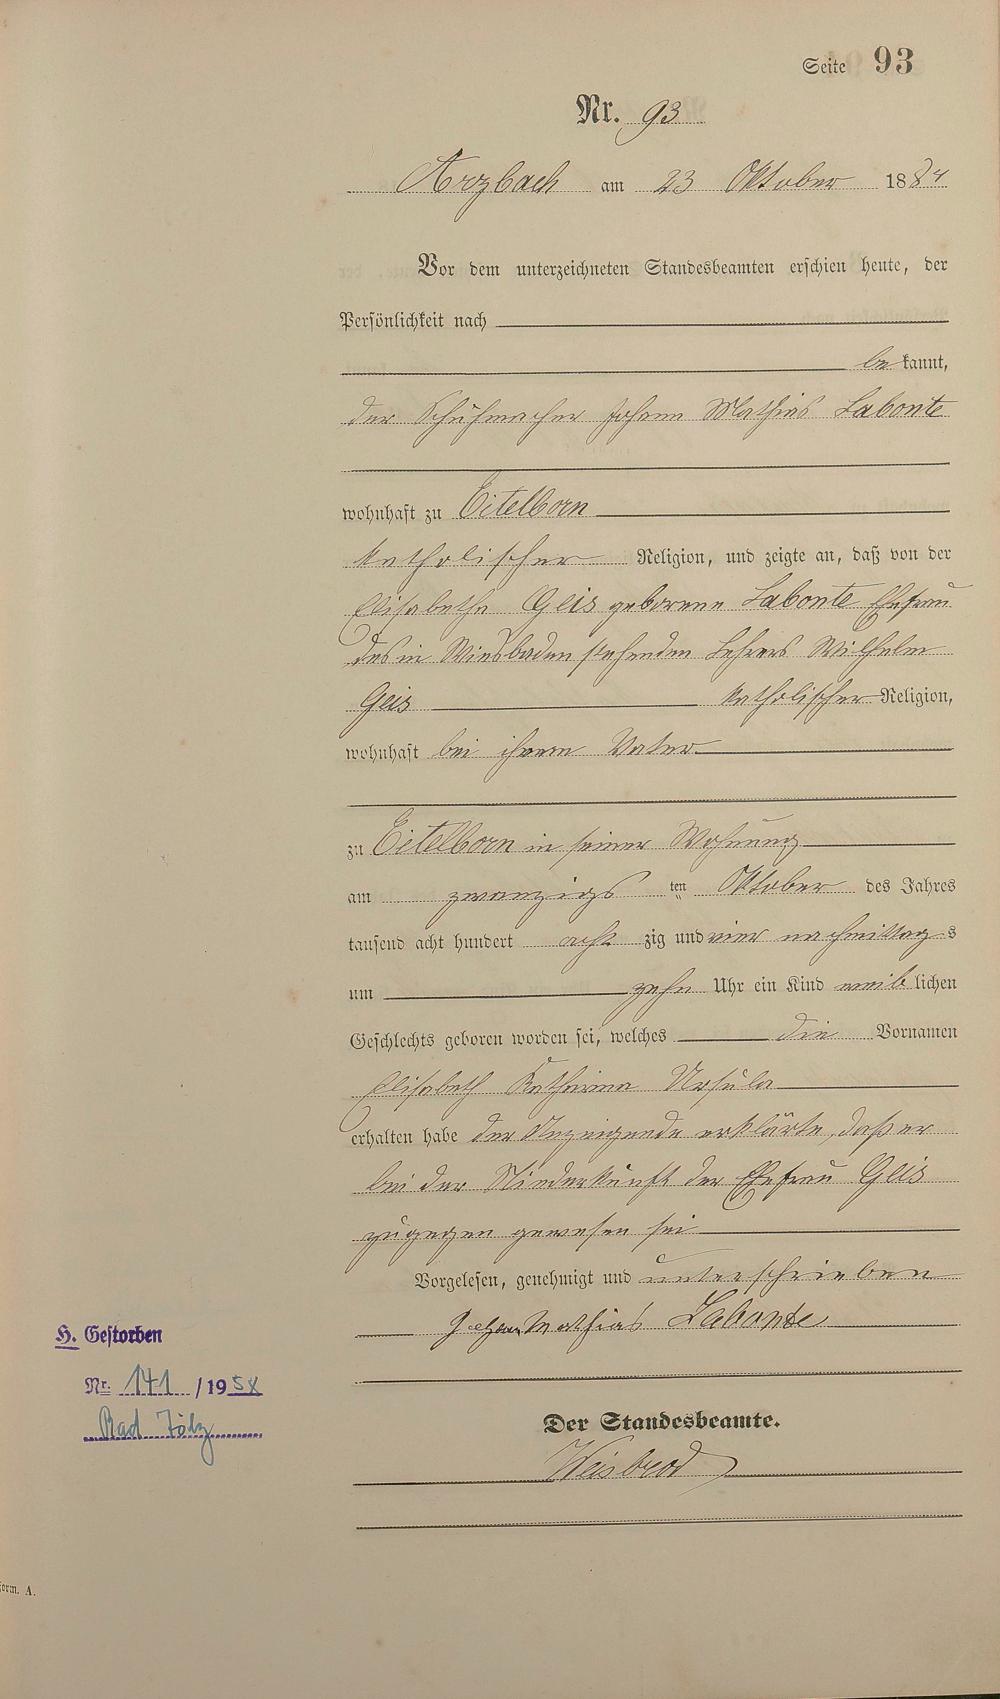 Seite 93
Nr. 93
Arzbach am 23 Oktober 1884
Vor dem unterzeichneten Standesbeamten erschien heute, der
Persönlichkeit nach
bekannt,
der Schuhmacher Johann Mathias Labonte
wohnhaft zu Eitelborn
katholischer Religion, und zeigte an, daß von der
Elisabetha Geis geborene Labonte Ehefrau
des in Wiesbaden stehenden Lehrers Wilhelm
Geis katholischer Religion,
wohnhaft bei ihrem Vater
zu Eitelborn in seiner Wohnung
am zwanzigsten Oktober des Jahres
tausend acht hundert achtzig und vier nachmittags
um zehn Uhr ein Kind weiblichen
Geschlechts geboren worden sei, welches die Vornamen
Elisabeth Katharina Ursula
erhalten habe der Anzeigende erklärte, daß er
bei der Niederkunft der Ehefrau Geis
zugegen gewesen sei
Vorgelesen, genehmigt und unterschrieben
Johann Mathias Labonte
H. Gestorben
Nr. 141 /1958
Bad Tölz
Der Standesbeamte.
Weisbrod
Form. A.